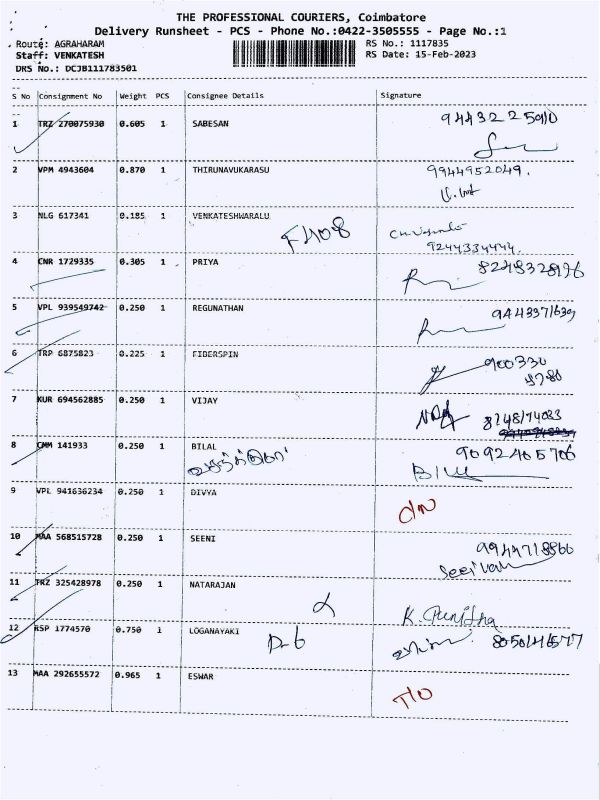 THE PROFESSIONAL COURIERS, Coimbatore
Delivery Runsheet - PCS - Phone No.:0422-3505555 - Page No.:1
Route: AGRAHARAM RS No.: 1117835
Staff: VENKATESH RS Date: 15-Feb-2023
DRS No.: DCJB111783501
S No Consignment No Weight PCS Consignee Details Signature
1 TRZ 270075930 0.605 1 SABESAN
2 VPM 4943604 0.870 1 THIRUNAVUKARASU 9944952049.
3 NLG 617341 0.185 1 VENKATESHWARALU F408
9244334444.
4 CNR 1729335 0.305 1 PRIYA
5 VPL 939549742 0.250 1 REGUNATHAN 9443371639
6 TRP 6875823 0.225 1 FIBERSPIN 900330
7 KUR 694562885 0.250 1 VIJAY
8 CMM 141933 0.250 1 BILAL 9092405706
9 VPL 941636234 0.250 1 DIVYA
10 MAA 568515728 0.250 1 SEENI 9944718866
11 TRZ 325428978 0.250 1 NATARAJAN
K. Punitha
12 KSP 1774570 0.750 1 LOGANAYAKI D-6
13 MAA 292655572 0.965 1 ESWAR T/O